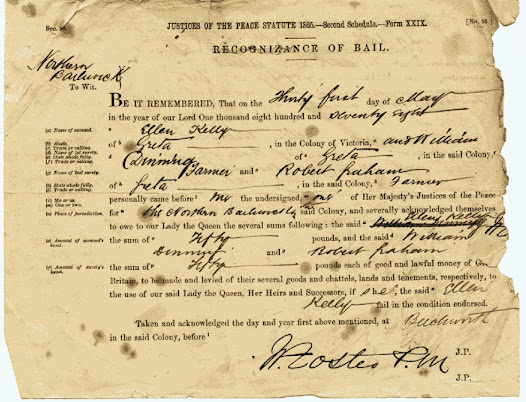 Sec. 94.
JUSTICES OF THE PEACE STATUTE 1865.—Second Schedule.—Form XXIX.
[No. 95.]
RECOGNIZANCE OF BAIL.
Northern
Bailiwick
To Wit.
BE IT REMEMBERED, That on the Thirty first day of May
in the year of our Lord One thousand eight hundred and seventy eight
(a) Name of accused.
Ellen Kelly
(b) Abode.
(c) Trade or calling.
of Greta, in the Colony of Victoria, and William
(d) Name of 1st surety.
(e) State abode fully.
(f) Trade or calling.
Dinning of Greta, in the said Colony,
(g) Name of 2nd surety.
Farmer and Robert Graham
(h) State abode fully.
(i) Trade or calling.
of Greta, in the said Colony, Farmer
(m) One or two.
personally came before me the undersigned, one of Her Majesty's Justices of the Peace
(o) Place of jurisdiction.
for the Northern Bailiwick said Colony, and severally acknowledged themselves
to owe to our Lady the Queen the several sums following: the said Ellen Kelly
(p) Amount of accused's bond.
the sum of Fifty pounds, and the said William
Dinning and Robert Graham
(q) Amount of surety's bond.
the sum of Fifty pounds each of good and lawful money of
Britain, to be made and levied of their several goods and chattels, lands and tenements, respectively, to
the use of our said Lady the Queen, Her Heirs and Successors, if she, the said Ellen
Kelly fail in the condition endorsed.
Taken and acknowledged the day and year first above mentioned, at Beechworth
in the said Colony, before
W. Foster P.M. J.P.
J.P.